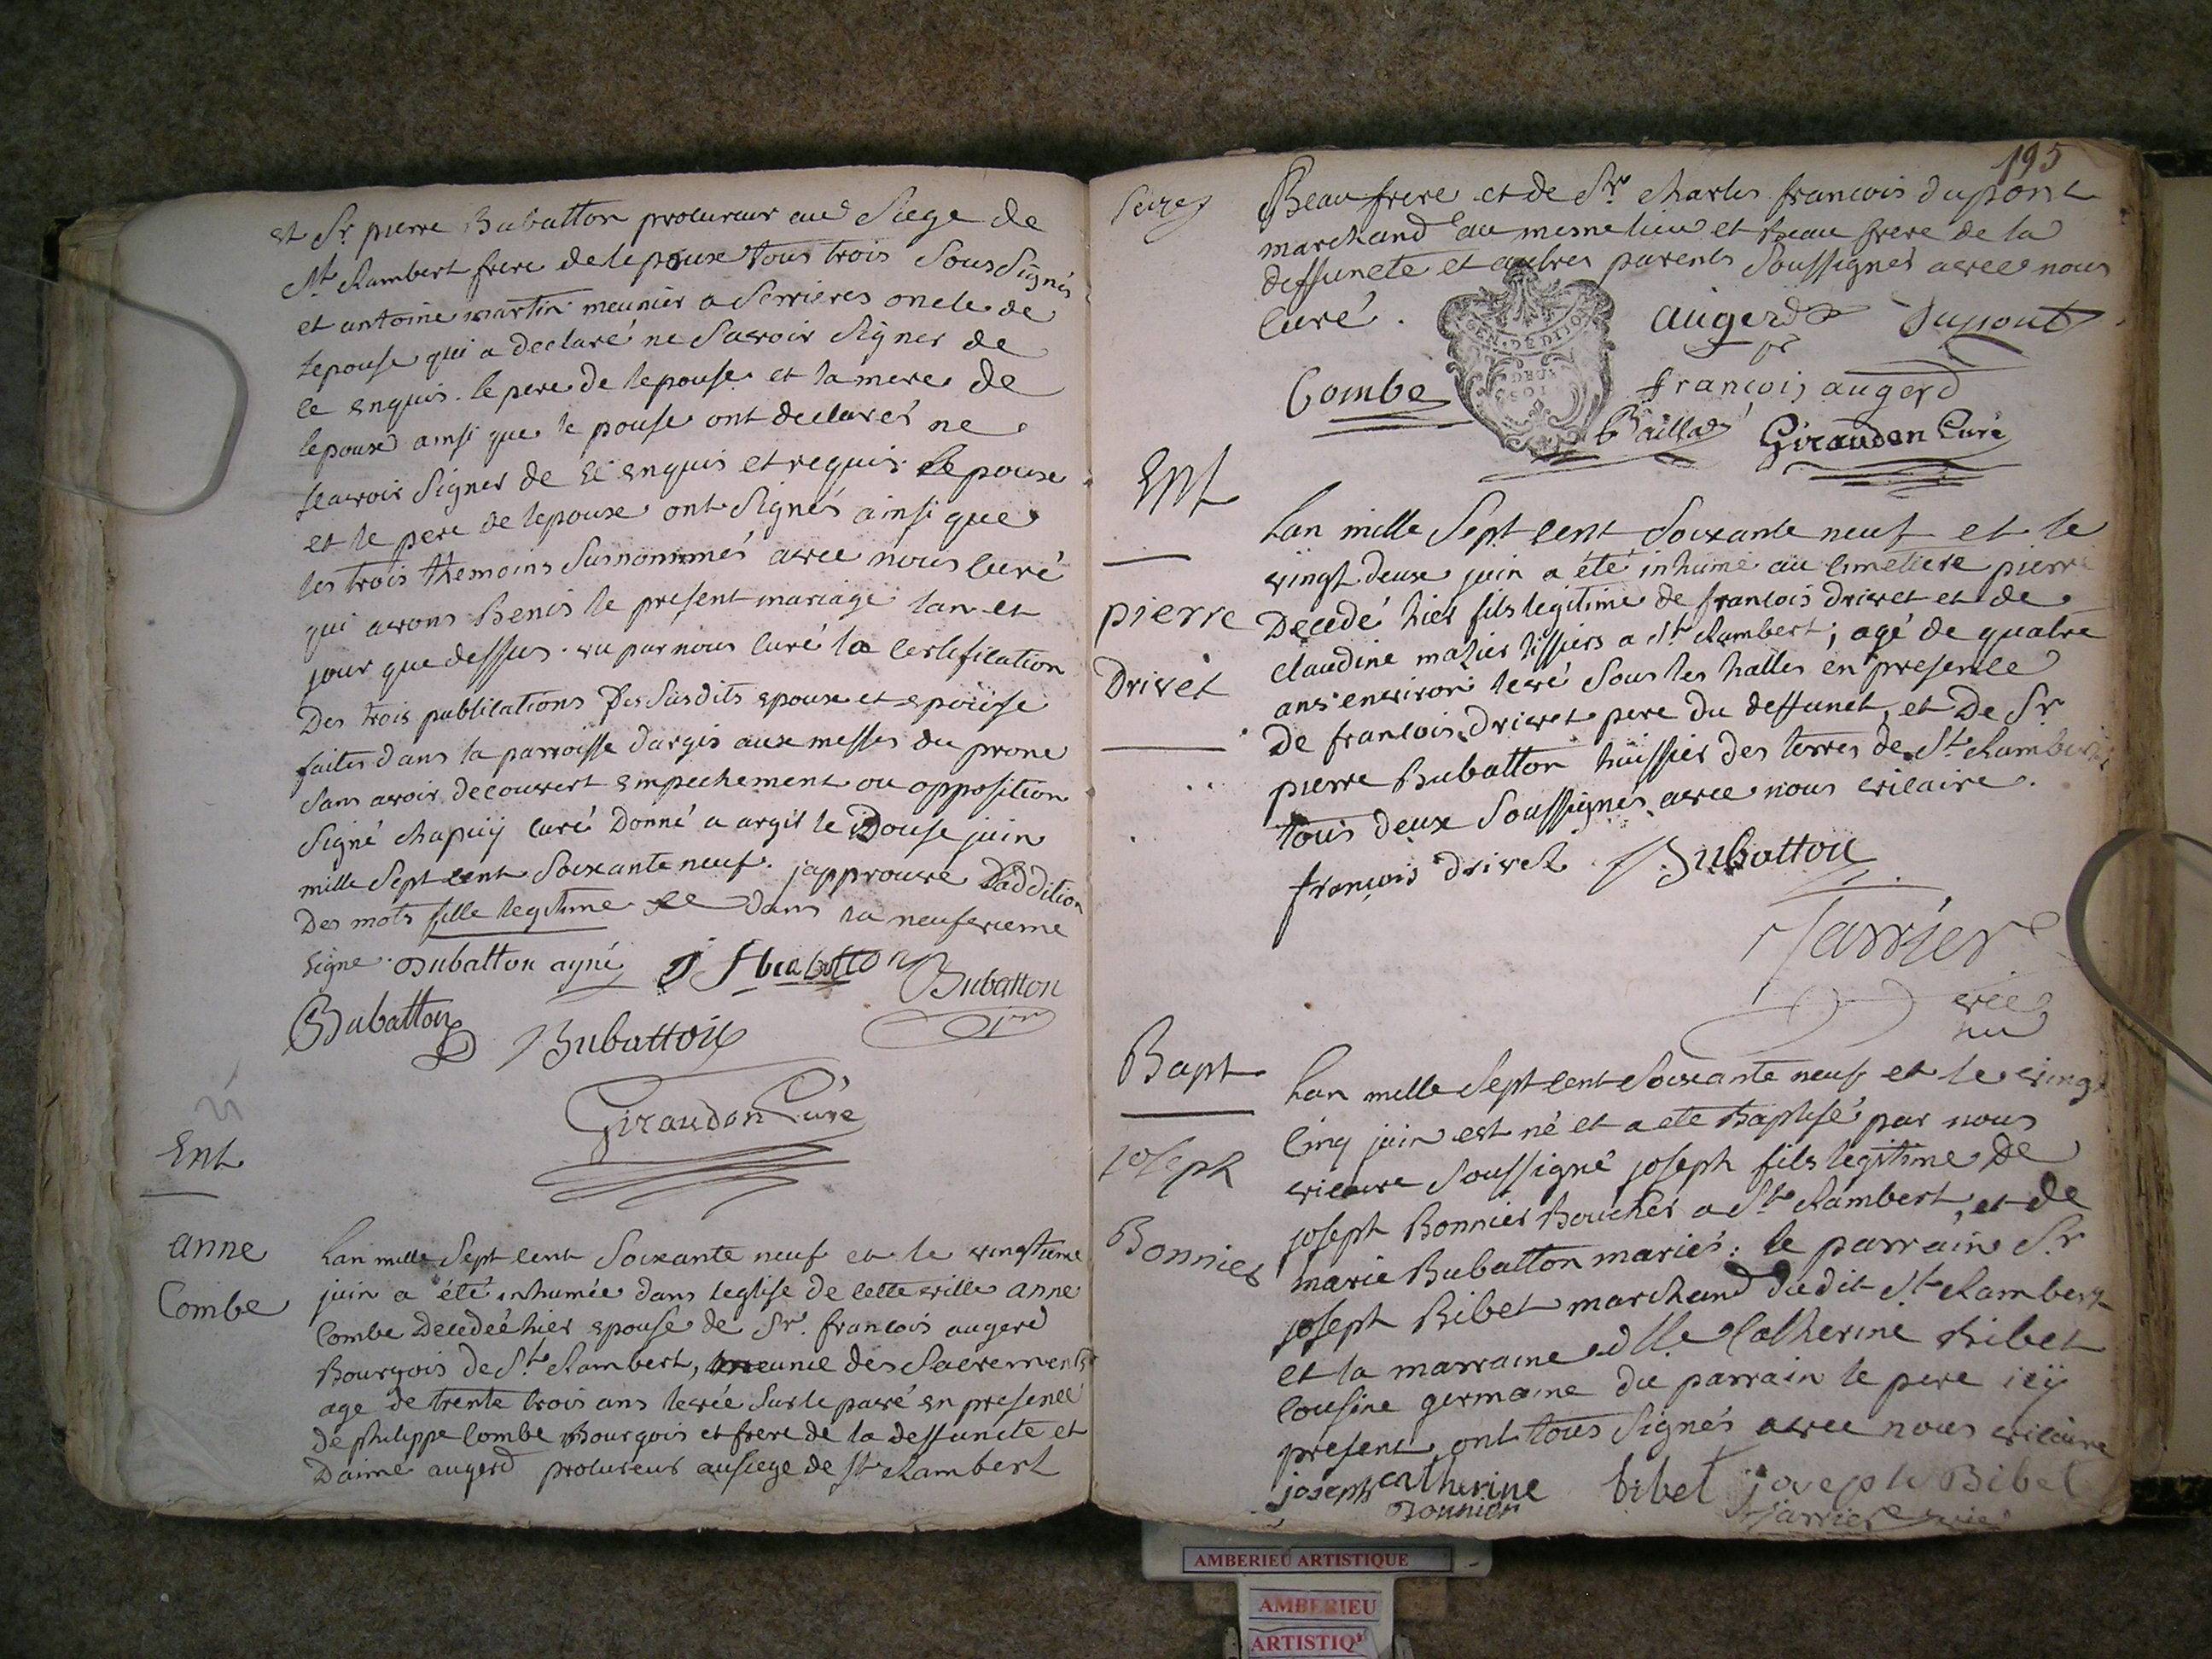 et Sr pierre Bubatton procureur au Siege de
St Rambert frere de lepoux tous trois SousSignés
et antoine martin meunier a Serrieres oncle de
lepouse qui a declaré ne Savoir Signer de
ce enquis. le pere de lepouse et la mere de
lepoux ainsi que lepouse ont declarés ne
scavoir Signer de ce enquis et requis. Lepoux
et le pere de lepoux ont Signés ainsi que
les trois themoins Susnommés avec nous curé
qui avons Benis le present mariage lan et
jour que dessus. vu par nous curé la certification
Des trois publications des Susdits epoux et epouse
faites dans la parroisse dargis aux messes du prone
Sans avoir decouvert empechement ou opposition
Signé chapuÿ curé Donné a argis le Douse juin
mille Sept cent Soixante neuf. japprouve Laddition
Des mots fille legitime dans la neufvieme
ligne. Bubatton ayné
Bubatton
Bubatton
Bubatton
Giraudon Curé
Ent
anne
Combe
Lan mille Sept cent Soixante neuf et le vingtieme
juin a été inhumée dans leglise de cette ville anne
Combe Decedeé hier epouse de Sr. francois augerd
Bourgois de St Rambert, munie des Sacrements
age de trente trois ans levée Sur le pavé en presence
de philippe Combe Bourgois et frere de la deffuncte et
Daimé augerd procureur au siege de St Rambert
195
Beau frere et de Sr charles francois dupont
marchand au mesme lieu et beau frere de la
deffuncte et autres parents Soussignés avec nous
Curé.
GEN. DE DIJON
DEUX
augerd Dupont
Combe
françois augerd
Baillad Giraudon Curé
Ent
pierre
Drivet
Lan mille Sept cent Soixante neuf et le
vingt deux juin a été inhumé au cimetiere pierre
Decedé hier fils legitime de francois drivet et de
claudine mazier tissiers a St Rambert, agé de quatre
ans environ levé Sous les halles en presence
De francois Drivet pere du deffunct, et De Sr
pierre Bubatton huissier des terres de St Rambert
tous deux Soussignés avec nous vicaire.
françois drivet Bubatton
Jarrier
vic
Bapt
joseph
Bonnier
Lan mille Sept cent Soixante neuf et le vingt
Cinq juin est né et a eté Baptisé par nous
vicaire Soussigné joseph fils legitime de
joseph Bonnier Boucher a St Rambert, et de
marie Bubatton mariés: le parrain Sr
joseph Bibet marchand dudit St Rambert
et la marraine dlle Catherine Bibet
Cousine germaine du parrain le pere icÿ
present, ont tous Signés avec nous vicaire
joseph catherine bibet joseph Bibet
Bonnier Jarrier vic
AMBERIEU ARTISTIQUE
AMBERIEU
ARTISTIQ